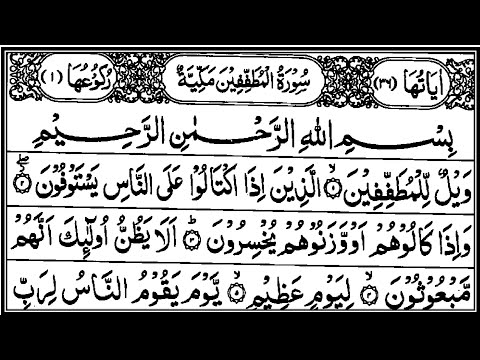 اٰيَاتُهَا (٣٦) سُوْرَةُ الْمُطَفِّفِيْنَ مَكِّيَّةٌ رُكُوْعُهَا (١)
بِسْمِ اللهِ الرَّحْمٰنِ الرَّحِيْمِ
وَيْلٌ لِّلْمُطَفِّفِيْنَ ۙ﴿١﴾ الَّذِيْنَ اِذَا اكْتَالُوْا عَلَى النَّاسِ يَسْتَوْفُوْنَ ۖ﴿٢﴾
وَاِذَا كَالُوْهُمْ اَوْ وَّزَنُوْهُمْ يُخْسِرُوْنَ ؕ﴿٣﴾ اَلَا يَظُنُّ اُولٰٓئِكَ اَنَّهُمْ
مَّبْعُوْثُوْنَ ۙ﴿٤﴾ لِيَوْمٍ عَظِيْمٍ ۙ﴿٥﴾ يَّوْمَ يَقُوْمُ النَّاسُ لِرَبِّ